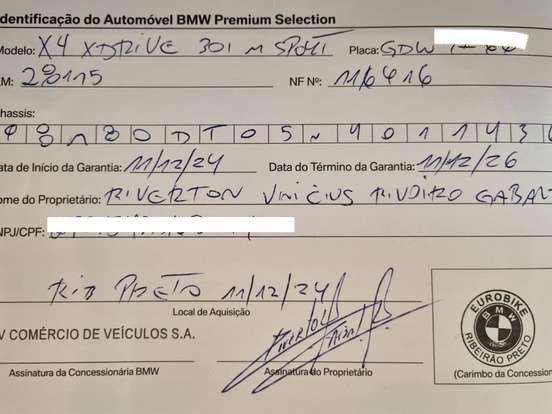 dentificação do Automóvel BMW Premium Selection
Modelo: X4 XDRIVE 30I M SPORT Placa: GDW
KM: 28115 NF Nº: 116416
Chassis:
Data de Início da Garantia: 11/12/24 Data do Término da Garantia: 11/12/26
ome do Proprietário: RIVERTON VINICIUS
NPJ/CPF:
RIB PRETO 11/12/24
Local de Aquisição
V COMÉRCIO DE VEÍCULOS S.A.
Assinatura da Concessionária BMW Assinatura do Proprietário (Carimbo da Concession
EUROBIKE
BMW
RIBEIRÃO PRETO